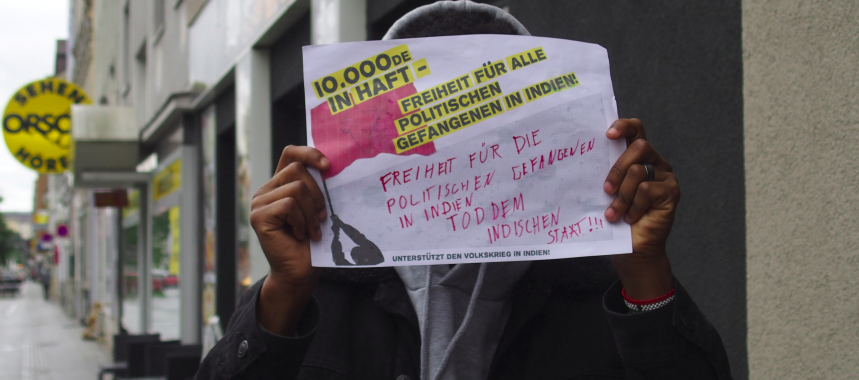 SEHEN
ORSO
HÖREN
10.000DE
IN HAFT -
FREIHEIT FÜR ALLE
POLITISCHEN
GEFANGENEN IN INDIEN!
FREIHEIT FÜR DIE
POLITISCHEN GEFANGENEN
IN INDIEN
TOD DEM
INDISCHEN
STAAT!!!
UNTERSTÜTZT DEN VOLKSKRIEG IN INDIEN!